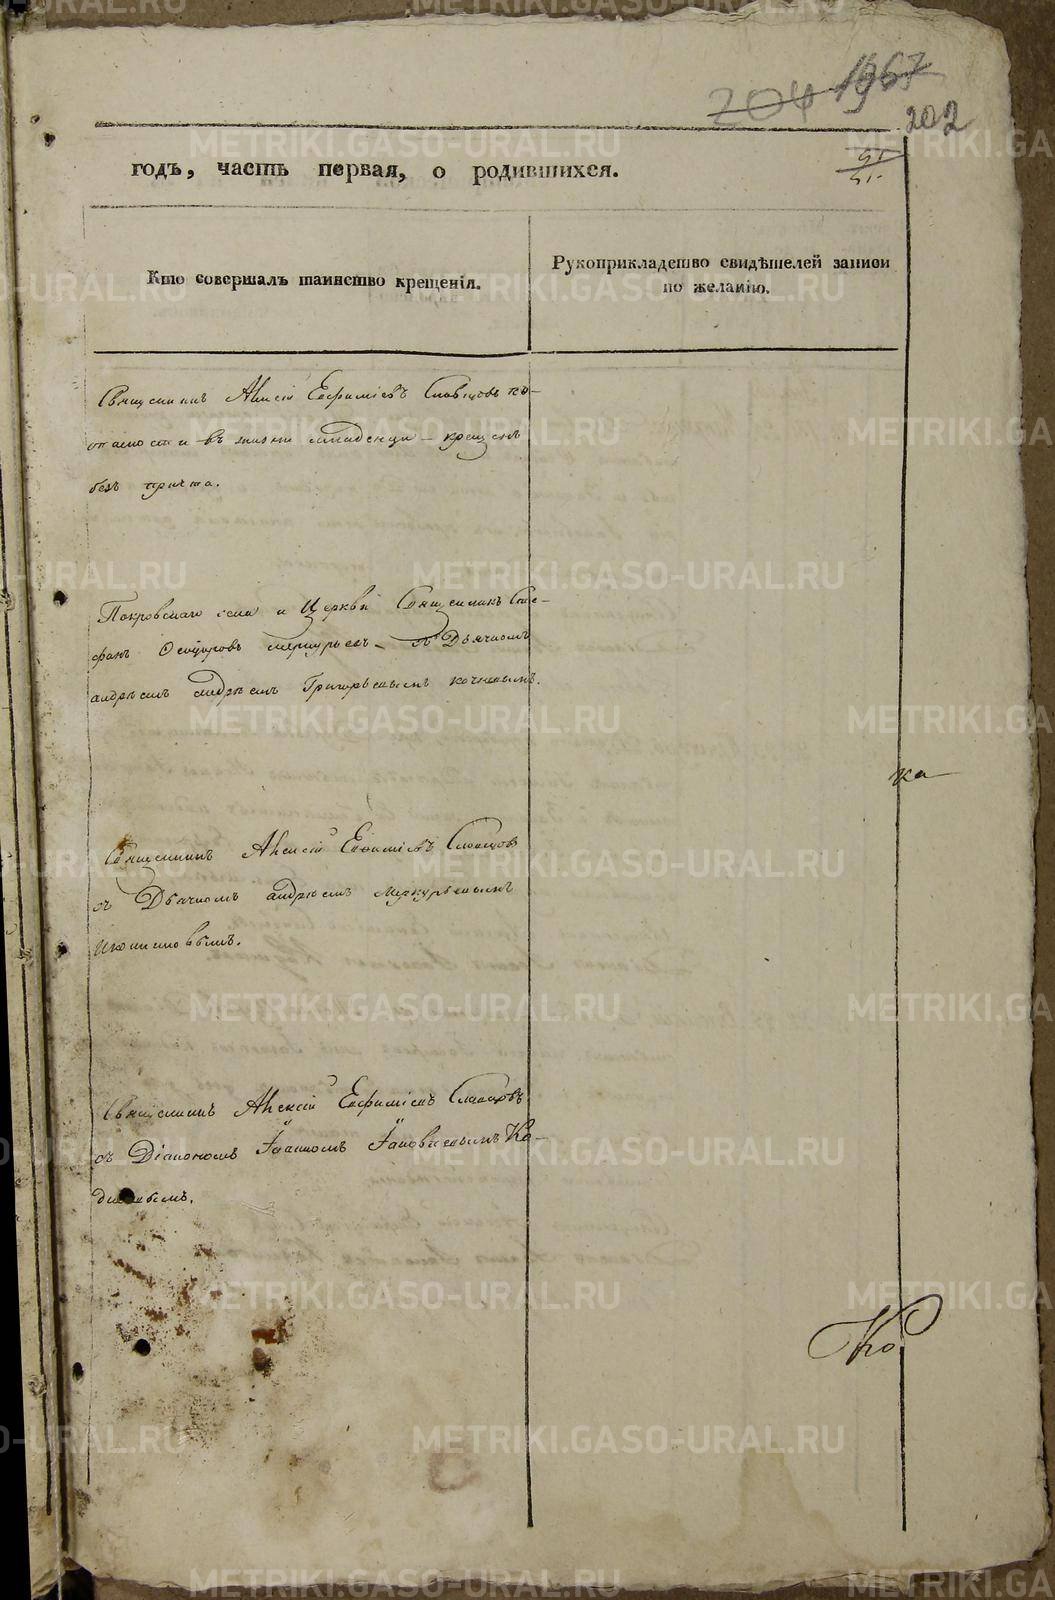 204 1967
202
годъ, часть первая, о родившихся.
51
51.
Кто совершалъ таинство крещенія.
Рукоприкладство свидѣтелей записи
по желанію.
Священникъ Алексій Евфиміевъ Словцовъ по
опасности въ жизни младенца – крещенъ
безъ причта.
Покровскаго села и Церкви Священникъ Сте-
фанъ Федоровъ Меркурьевъ съ Дьячкомъ
Андреемъ Андреемъ Григорьевымъ Кочневымъ.
ка
Священникъ Алексій Евфиміевъ Словцовъ
съ Дьячкомъ Андреемъ Меркурьевымъ
Священникъ Алексій Евфиміевъ Словцовъ
съ Діакономъ Іоанномъ Іаковлевымъ Ка-
Ко
METRIKI.GASO-URAL.RU